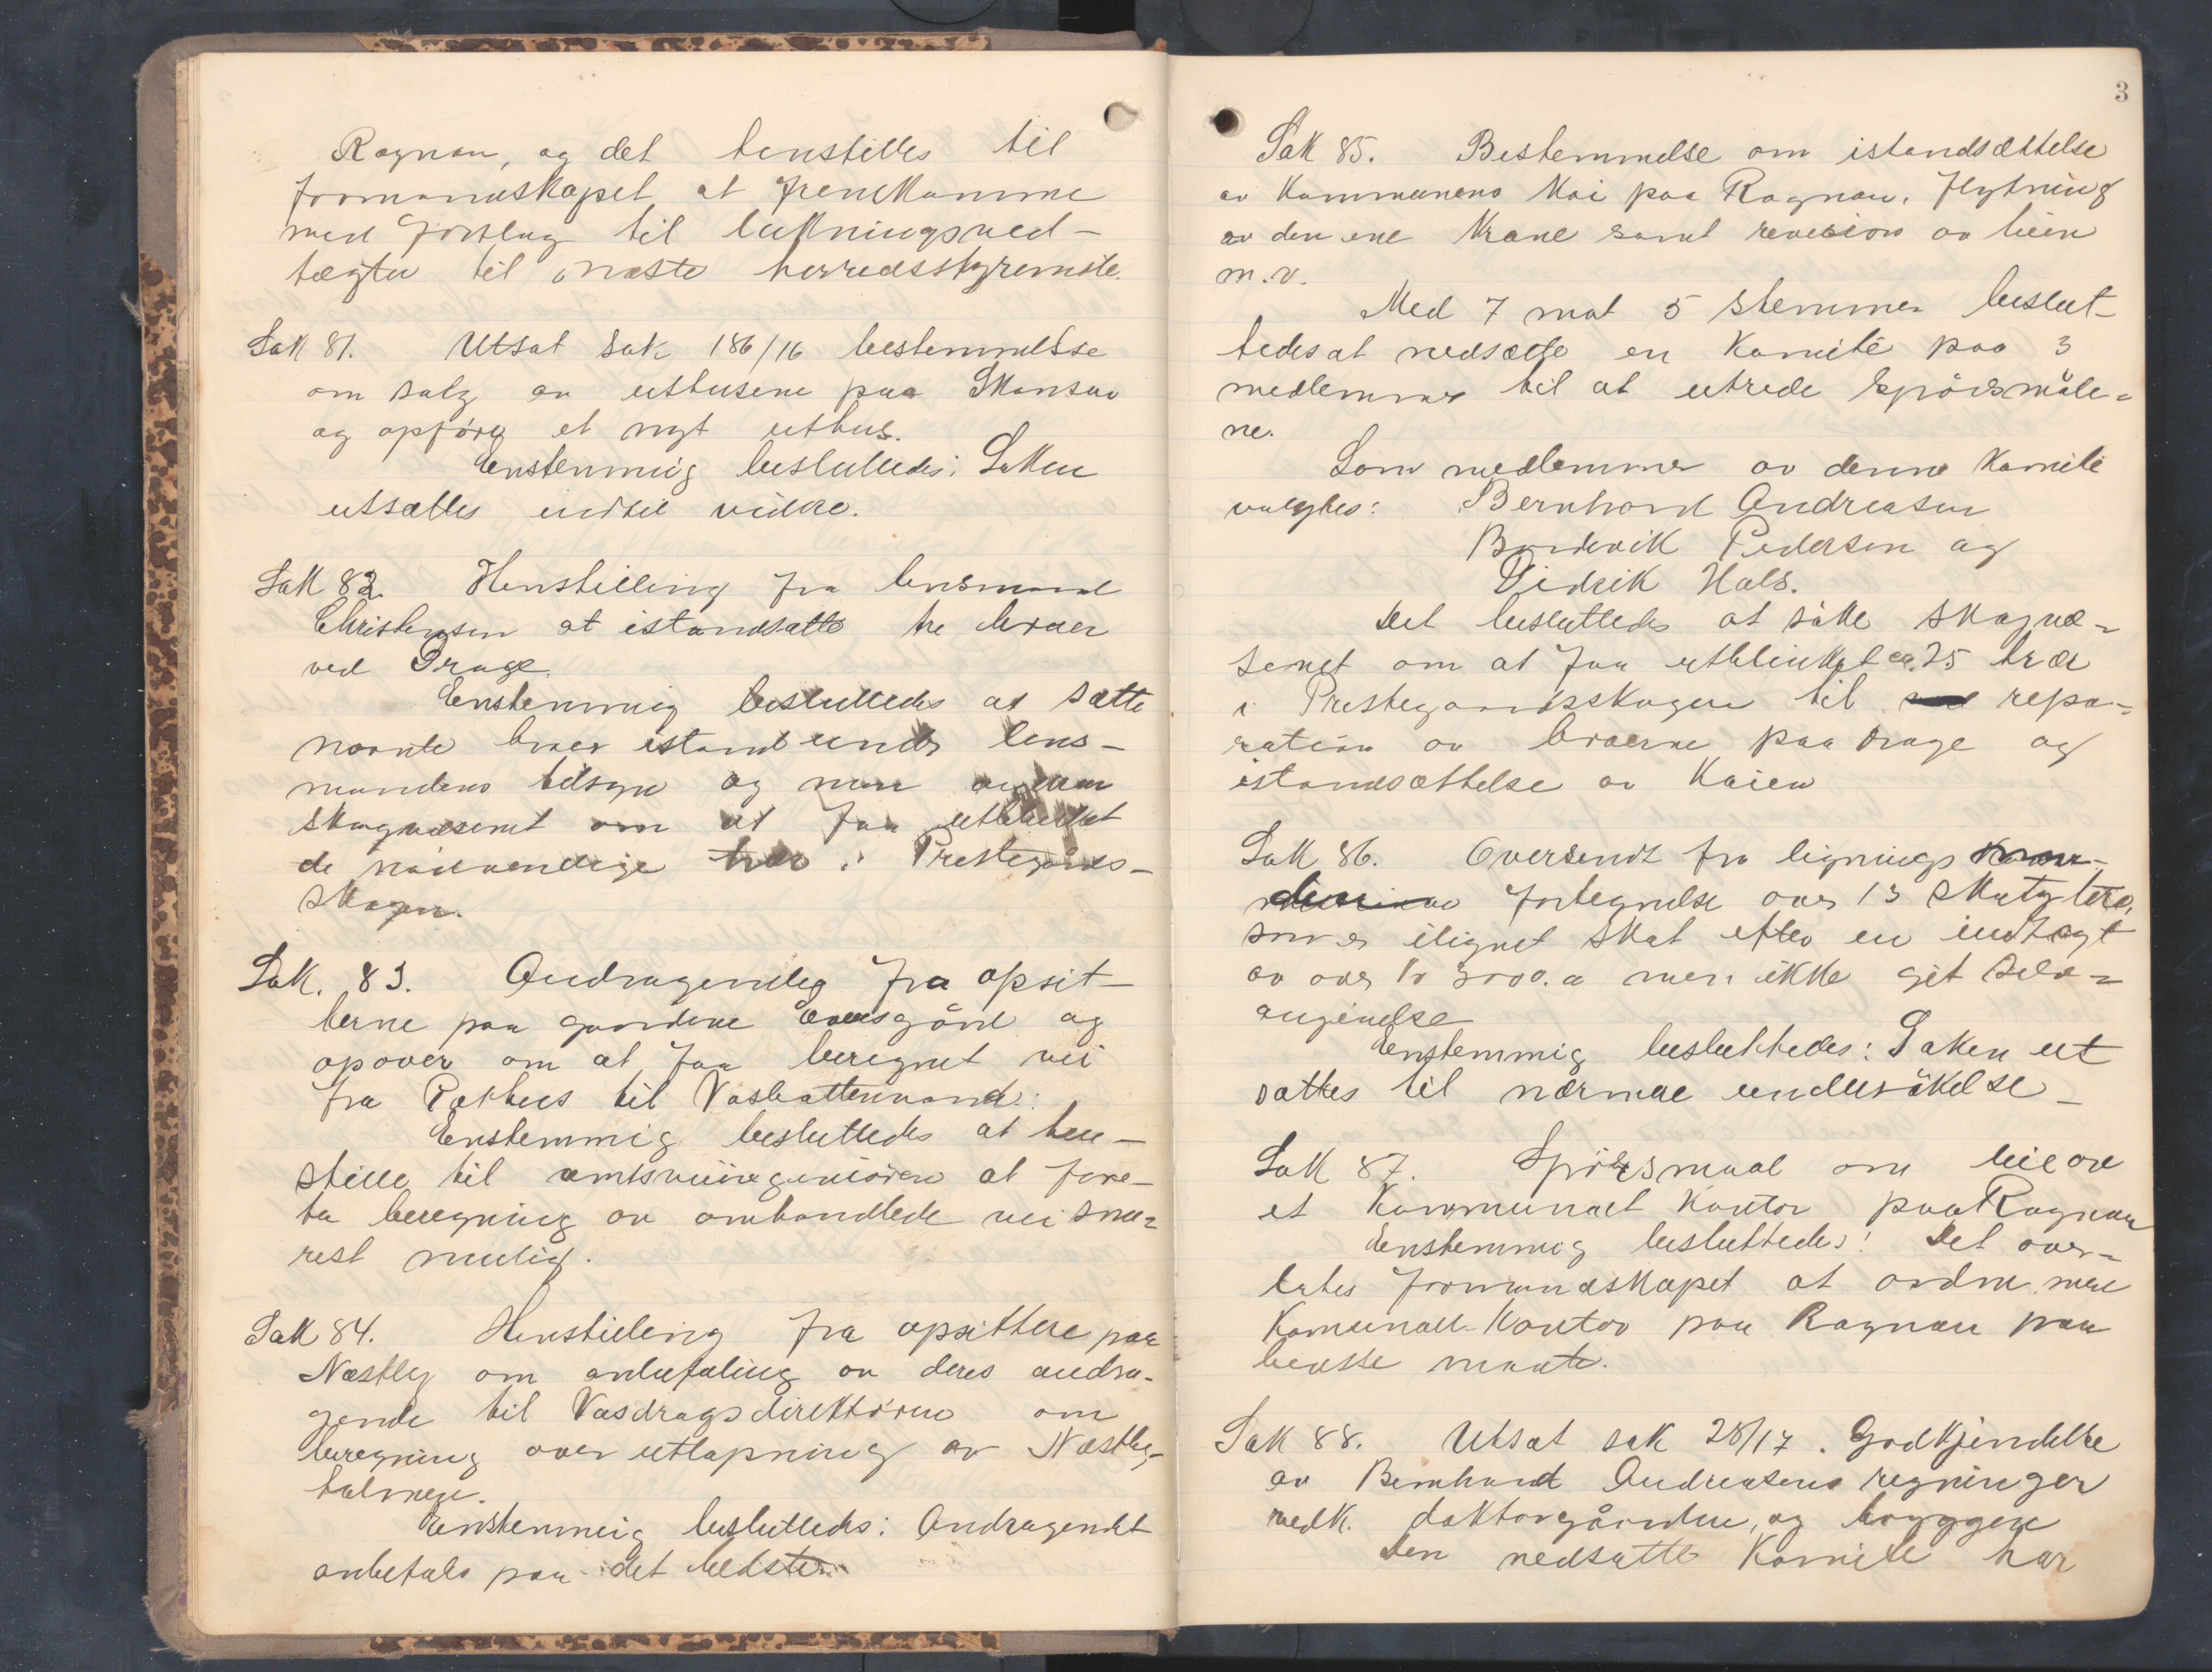 Rognan, og det henstilles til
formandskapet at fremkomme
med forslag til lukningsved-
tægter til næste herredsstyremøte.
Sak 81. Utsat sak 186/16 bestemmelse
om salg av uthusene paa Skansen
og opføre et nyt uthus.
Enstemmig besluttedes: Saken
utsættes indtil videre.
Sak 82. Henstilling fra lensmand
Christensen at istandsætte tre broer
ved Drage.
Enstemmig besluttedes at sætte
nævnte broer istand under lens-
mandens tilsyn og
skogvæsenet om at faa utblinket
de nødvendige trær i Prestegårds-
skogen.
Sak. 83. Andragende fra opsit-
terne paa gaardene Evensgård og
opover om at faa beregnet vei
fra Pakhus til Vasbottenvand.
Enstemmig besluttedes at hen-
stille til amtsveiingeniøren at fore-
ta beregning av omhandlede vei sna-
rest mulig.
Sak 84. Henstilling fra opsittere paa
Næstby om anbefaling av deres andra-
gende til Vasdragsdirektøren om
beregning over uttapning av Næstby-
tølmen.
Enstemmig besluttedes: Andragendet
anbefales paa det bedste.
3
Sak 85. Bestemmelse om istandsættelse
av Kommunens Kai paa Rognan. Flytning
av den ene Krane samt revision av leien
m.v.
Med 7 mot 5 stemmer beslut-
tedes at nedsætte en Komité paa 3
medlemmer til at utrede spørsmåle-
ne.
Som medlemmer av denne Komite
valgtes: Bernhard Andreasen
Bordevik Pedersen og
Didrik Hals.
Det besluttedes at søke skogvæ-
senet om at faa utblinket ca. 25 trær
i Prestegaardsskogen til repa-
ration av broerne paa Drage og
istandsættelse av Kaien
Sak 86. Oversendt fra lignings
fortegnelse over 13 skatytere,
som er ilignet skat efter en indtægt
av over kr 3000.- men ikke git selv-
angivelse
Enstemmig besluttedes: Saken ut
sættes til nærmere undersøkelse -
Sak 87. Spørsmaal om leie av
et Kommunalt Kontor paa Rognan
Enstemmig besluttedes: Det over-
lates formandskapet at ordne med
Komunalt-Kontor paa Rognan paa
bedste maate.
Sak 88. Utsat sak 28/17. Godkjendelse
av Bernhard Andreasens regninger
vedk. doktorgården, og bryggen
Den nedsatte Komite har